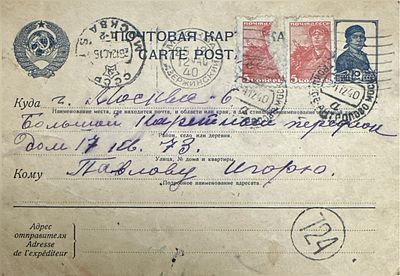 ПОЧТОВАЯ КАР
CARTE POST
МОСКВА
СССР
12 40
ДЗЕРЖИНСКИЙ
5 КОПЕЕК
5 КОПЕЕК
Куда г. Москва - 6
Наименование места, где находится почта, и области или края, а для станций наименование ж. д.
Большой Каретный переулок
Район, село или деревня.
дом 17 кв. 73.
Улица, № дома и квартиры.
Кому Павлову Игорю.
Подробное наименование адресата.
Адрес
отправителя
Adresse de
l'expéditeur
124